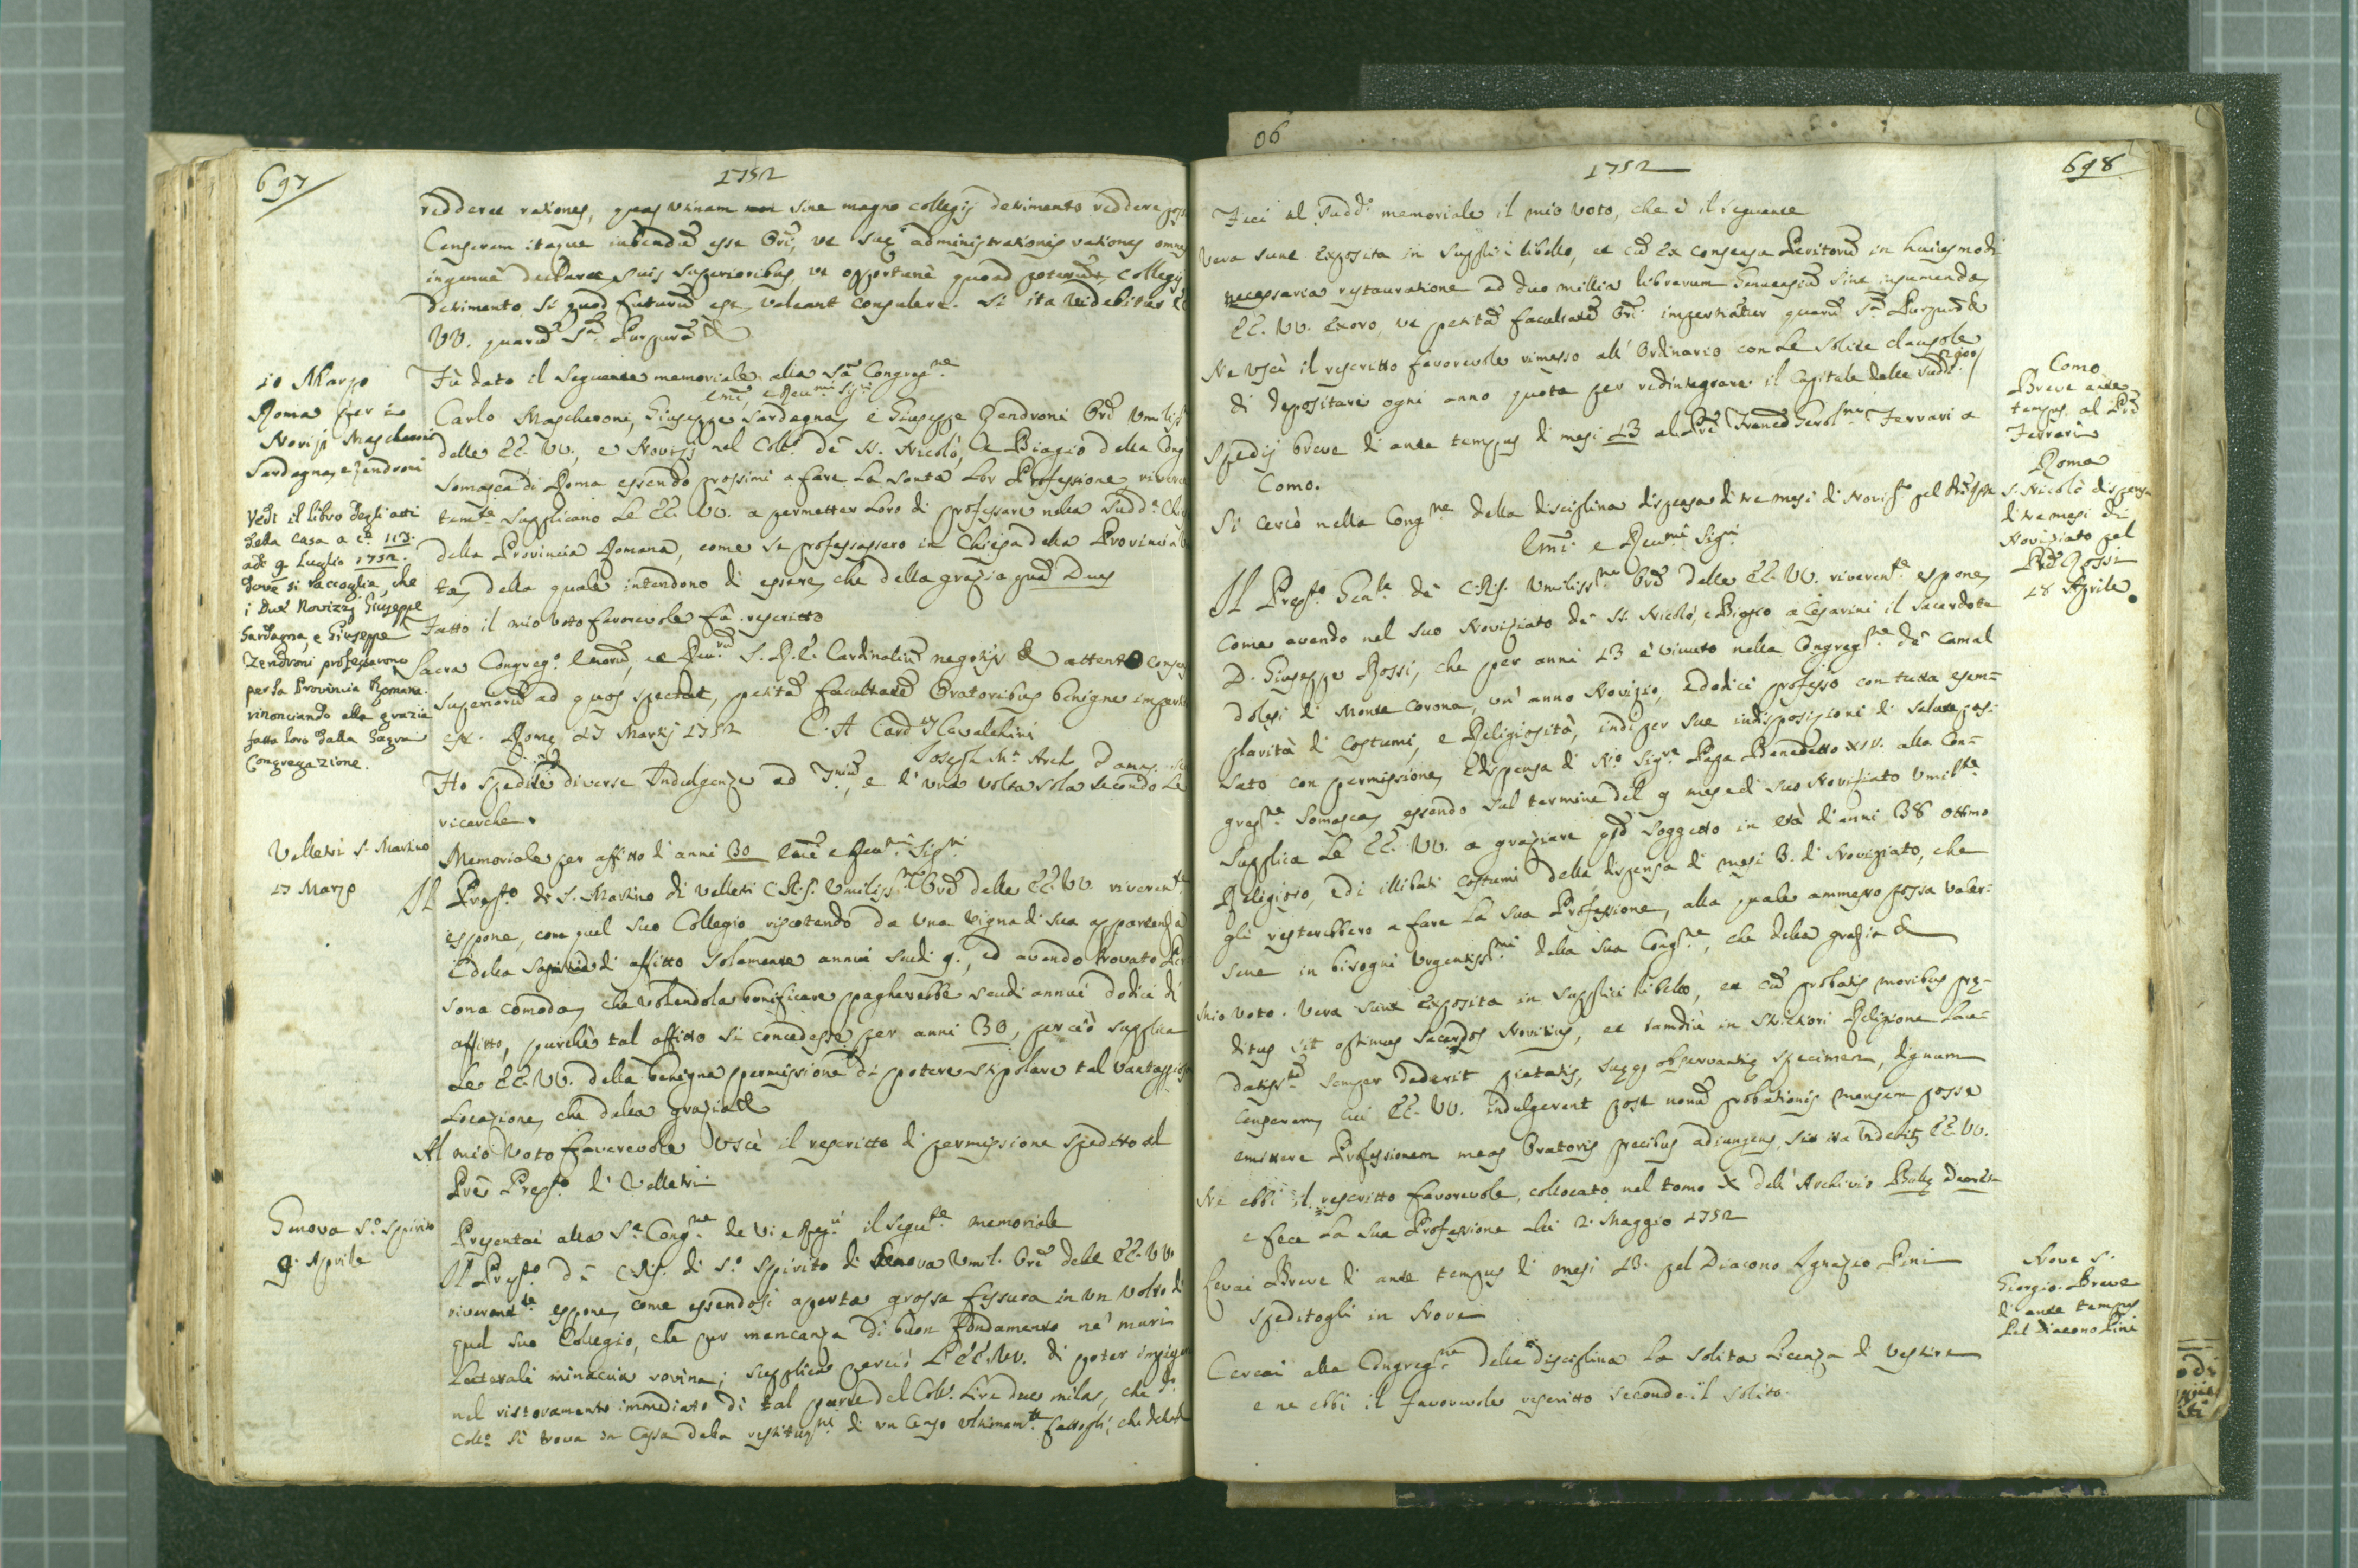 697
1752
reddere rationes, quas utinam sine magno collegij detrimento reddere
Censerem itaque iubendũ esse Orĩ, ut suę administrationis rationes omnes
ingenuè declaret suis superioribus, ut opportunè quoad poterunt, collegij
detrimento si quod futurũ est, valeant consulere. Si ita videbitur
VV. quarũ Sã. Purpurã &
10 Marzo
Roma per i
Novizi Mascheroni
Sardagna, e Zendroni
Vedi il libro degli atti
della casa a c.ª 113.
adì 9 Luglio 1752.
dove si raccoglia, che
i due Novizzj Giuseppe
Sardagna, e Giuseppe
Zendroni professarono
per la Provincia Romana.
rinonciando alla grazia
fatta loro dalla Sagra
Congregazione.
Fù dato il seguente memoriale alla Sã Congreg.ne
Emĩ, e Reu.mi Sig.ri
Carlo Mascheroni, Giuseppe Sardagna, e Giuseppe Zendroni Orĩ Umiliss
delle EE. VV., e Novizj nel Coll.º de SS. Nicolò, e Biagio della Cong
Somasca di Roma essendo prossimi a fare la santa lor Professione, riveren
tem.te supplicano le EE. VV. a permetter loro di professare nella sudd.ª
della Provincia Romana, come se professassero in Chiesa della Provincia
ta, della quale intendono di essere, che della grazia quã Deus
Fatto il mio voto favorevole fù rescritto
Sacra Congreg.º Emorũ, ac Reu.rũ S. R. E. Cardinaliũ negotijs & attento consensu
superiorũ ad quos spectat, petitã facultatẽ Oratoribus benigne impertita
est. Romę 17 Martij 1752 C. A Card.is Cavalchini
Joseph M.ª Arch. Damas.
Ho spedite diverse Indulgenze ad , e d'una volta sola secondo le
ricerche.
Velletri S. Martino
17 Marzo
Memoriale per affitto d'anni 30 Emĩ e Reu.mi Sig.ri
Il Prep.to di S. Martino di Velletri C.R.S. Umiliss.mo Orẽ delle EE. VV. riverent.te
espone, come quel suo Collegio riscotendo da una Vigna di sua appartenza
e della di affitto solamente annui scudi 9., ed avendo trovato Per
sona comoda, che volendola bonificare pagherebbe scudi annui dodici di
affitto, purchè tal affitto si concedesse per anni 30, perciò supplica
le EE. VV. della benigna permissione di potere stipolare tal vantaggiosa
Locazione, che della grazia &
Al mio Voto favorevole uscì il rescritto di permissione spedito al
Prẽ Prep.to di Velletri
Genova S.º Spirito
9. Aprile
Presentai alla S.ª Cong.ne de VV. e Reg.i il segu.te memoriale
Il Prep.to de C.R.S. di S.º Spirito di Genova Umil. Orẽ delle EE. VV.
riverent.te espone, come essendosi aperta grossa fissura in un volto di
quel suo Collegio, che per mancanza di buon fondamento ne' muri
laterali minaccia rovina; supplica perciò L'EE. VV. di poter impiegare
nel ristoramento immediato di tal parte del Coll.º Lire due mila, che d.º
Coll.º si trova in Cassa dalla restituz.ne di un Censo ultimam.te fattogli, che della
06
1752
698
Feci al sudd.º memoriale il mio voto, che è il seguente
Vera sunt exposita in supplici libello, et cũ ex consensu Peritorũ in huiusmodi
necessaria restauratione ad duo millia librarum Genuensiũ sint insumenda,
EE. VV. exoro, ut petitã facultatẽ Orĩ impertiatur quarũ Sã. Purpurã &
Ne uscì il rescritto favorevole rimesso all'Ordinario con le solite clausole
di depositare ogni anno quota per redintegrare il Capitale delle sudd.
Como
Breve ante
tempus al Prẽ
Ferrari
Spedij breve di ante tempus di mesi 13 al Prẽ Frãncẽ Gerol.mo Ferrari a
Como.
Roma
S. Nicolò dispensa
di tre mesi di
Noviziato pel
Prẽ Rossi
18 Aprile.
Si cercò nella Cong.ne della disciplina dispensa di tre mesi di Noviz.to pel
Emĩ e Reu.mi Sig.ri
Il Prep.to Gen.le de C.R.S. Umiliss.mo Orẽ delle EE. VV. riverent.te espone,
come avendo nel suo Noviziato de SS. Nicolò, e Biagio a Cesarini il Sacerdote
D. Giuseppe Rossi, che per anni 13 è vivuto nella Congreg.ne de Camal
dolesi di Monte Corona, un anno Novizio, e dodici professo con tutta esem=
plarità di costumi, e Religiosità, indi per sue indisposizioni di salute pas-
sato con permissione, e dispensa di N.º Sig.re Papa Benedetto XIV. alla Con=
greg.ne Somasca, essendo sul termine del 9 mese di suo Noviziato Umil.te
supplica le EE. VV. a graziare qsto soggetto in età di anni 38 ottimo
Religioso, e di illibati costumi della dispensa di mesi 3. di Noviziato, che
gli resterebbero a fare la sua Professione, alla quale ammesso possa valer-
sene in bisogni urgentiss.mi della sua Cong.ne, che della grazia &
Mio voto. Vera sunt exposita in supplici libello, et cũ probatis moribus prę-
ditus sit optimus Sacerdos Novitius, et tamdiù in strictiori Religione lau-
datiss.ẽ semper dederit pietatis, suęq; observantię specimen, dignum
censerem, cui EE. VV. indulgerent post nonũ probationis mensem posse
emittere Professionem meas Oratoris precibus adiungens, si ita videbitr EE. VV.
Ne ebbi il rescritto favorevole, collocato nel tomo X dell'Archivio Bullę Decreta
e fece la sua Professione alli 2. Maggio 1752
Nove S.
Giorgio. Breve
di ante tempus
pel Diacono Pini
Cercai Breve di ante tempus di mesi 13. pel Diacono Ignazio Pini
speditogli in Nove
Cercai alla Congreg.ne della disciplina la solita licenza di vestire
e ne ebbi il favorevole rescritto secondo il solito.